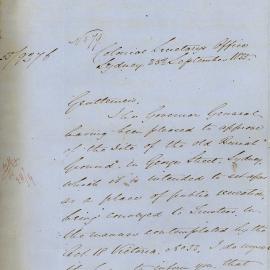 55/9376
Colonial Secretary's Office
Sydney 28th September 1855.
Gentlemen,
The Governor General
having been pleased to approve
of the Site of the old Burial
Ground in George Street, Sydney
which it is intended to set apart
as a place of public recreation,
being conveyed to Trustees in
the manner contemplated by the
Act 18 Victoria, No 33, I do myself
the honor to inform you that